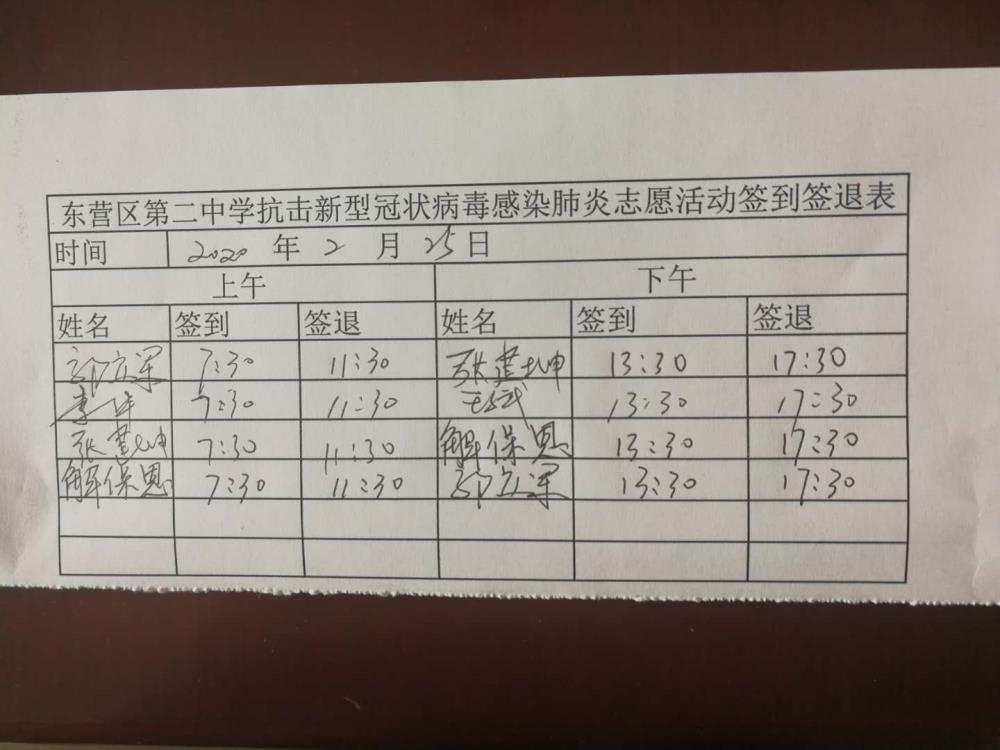 东营区第二中学抗击新型冠状病毒感染肺炎志愿活动签到签退表
时间 2020 年 2 月 25 日
上午 下午
姓名 签到 签退 姓名 签到 签退
7:30 11:30 张建坤 13:30 17:30
7:30 11:30 13:30 17:30
张建坤 7:30 11:30 解保恩 13:30 17:30
解保恩 7:30 11:30 13:30 17:30